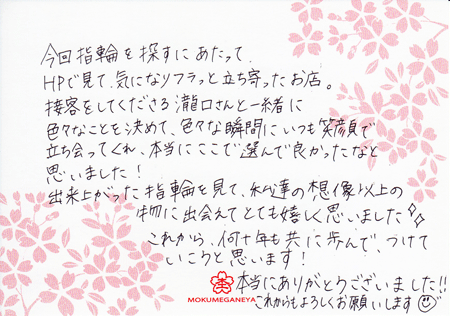 今回指輪を探すにあたって、
HPで見て気になりフラっと立ち寄ったお店。
接客をしてくださる瀧口さんと一緒に
色々なことを決めて、色々な瞬間にいつも笑顔で
立ち会ってくれ、本当にここで選んで良かったなと
思いました!
出来上がった指輪を見て、私達の想像以上の
物に出会えてとても嬉しく思いました
これから、何十年も共に歩んで、つけて
いこうと思います!
本当にありがとうございました!!
これからもよろしくお願いします
MOKUMEGANEYA